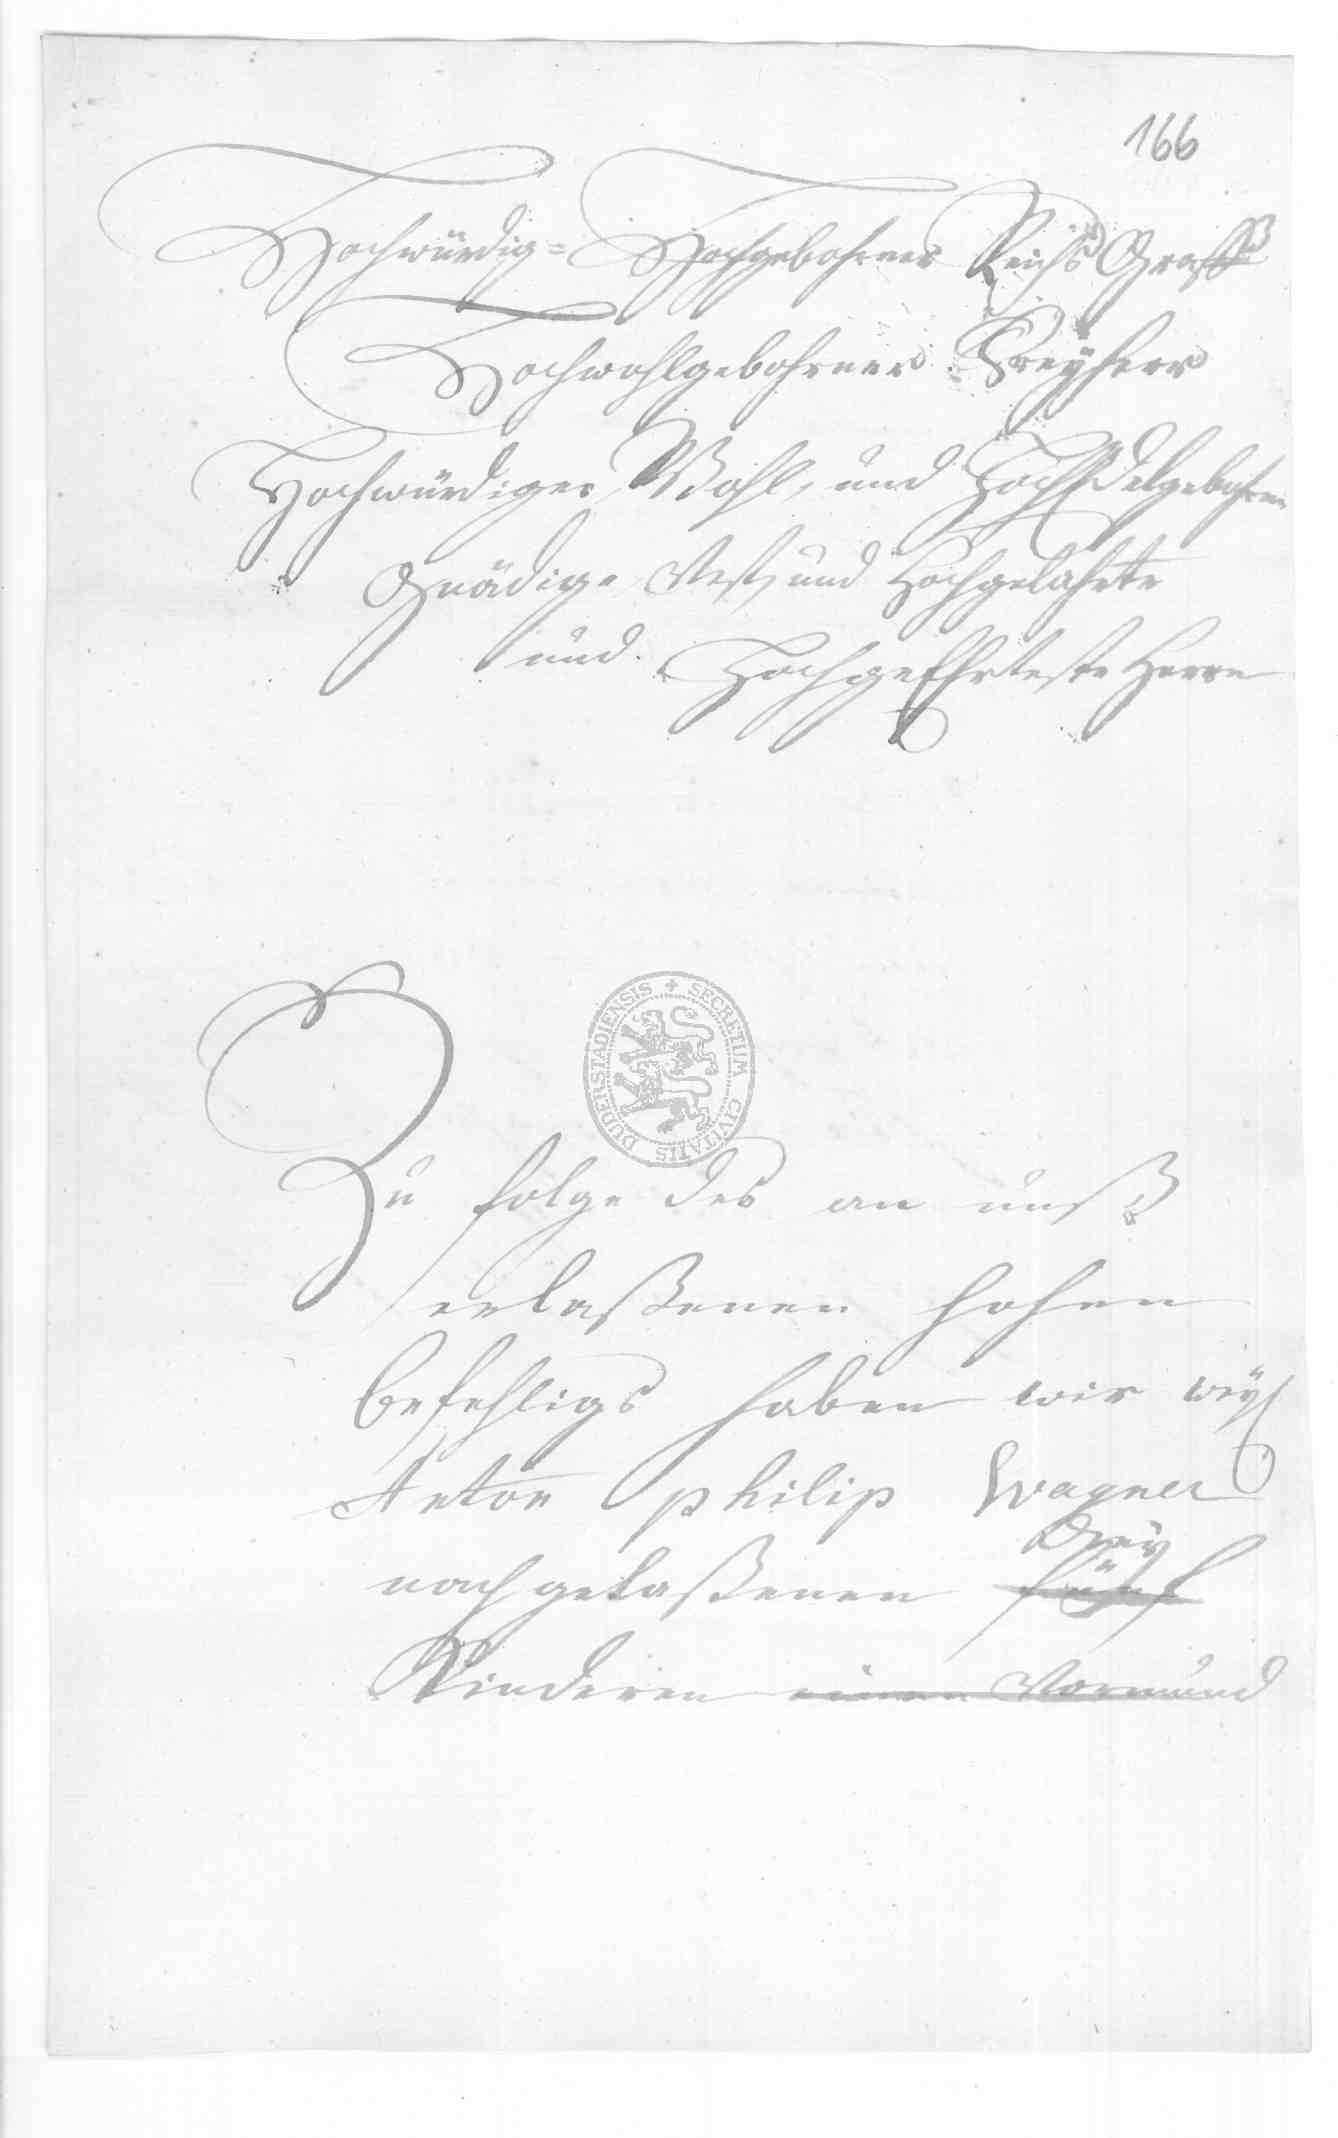 166
Hochwürdig= Hochgebohrner Reichs Graff
Hochwohlgebohrner Freyherr
Hochwürdiger, Wohl, und HochEdelgebohrne
Gnädige, Vest, und Hochgelahrte
und HochgeEhrteste Herren
DUDERSTADIENSIS + SECRETUM CIVITATIS
Zu folge des an unß
erlaßenen hohen
befehligs haben wir weyl
Anton philip Wagner
drey
nachgelaßenen fünf
Kinderen einen Vormund